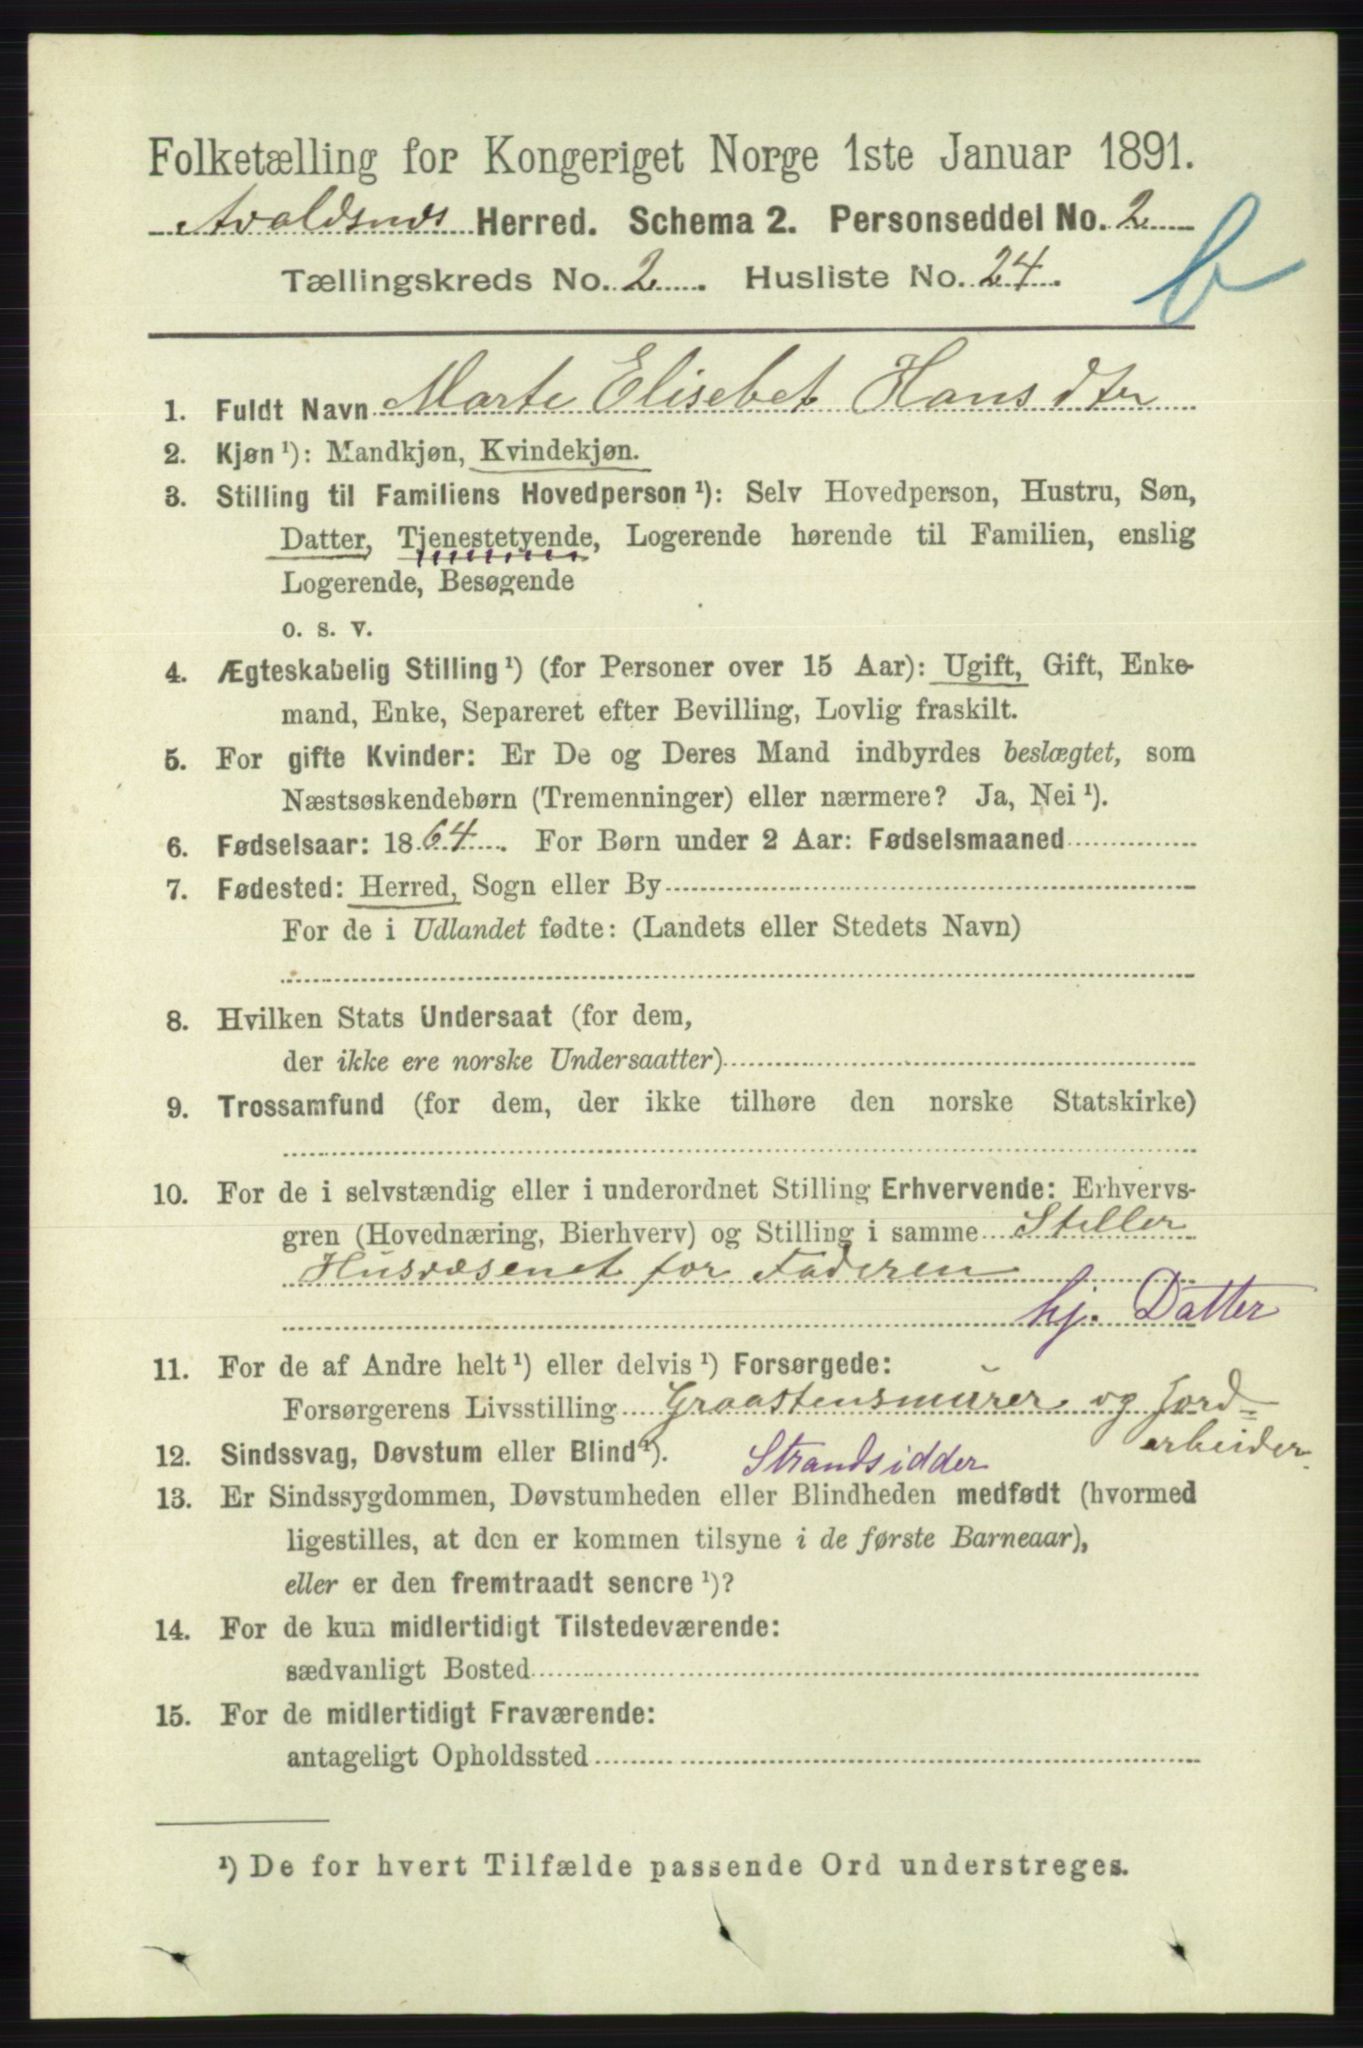 Folketælling for Kongeriget Norge 1ste Januar 1891.
Avaldsnes Herred. Schema 2. Personseddel No. 2
Tællingskreds No. 2. Husliste No. 24.
b
1. Fuldt Navn Marte Elisebet Hansdter
2. Kjøn ¹): Mandkjøn, Kvindekjøn.
3. Stilling til Familiens Hovedperson ¹): Selv Hovedperson, Hustru, Søn,
Datter, Tjenestetyende, Logerende hørende til Familien, enslig
Logerende, Besøgende
o. s. v.
4. Ægteskabelig Stilling ¹) (for Personer over 15 Aar): Ugift, Gift, Enke-
mand, Enke, Separeret efter Bevilling, Lovlig fraskilt.
5. For gifte Kvinder: Er De og Deres Mand indbyrdes beslægtet, som
Næstsøskendebørn (Tremenninger) eller nærmere? Ja, Nei ¹).
6. Fødselsaar: 1864. For Børn under 2 Aar: Fødselsmaaned
7. Fødested: Herred, Sogn eller By
For de i Udlandet fødte: (Landets eller Stedets Navn)
8. Hvilken Stats Undersaat (for dem,
der ikke ere norske Undersaatter)
9. Trossamfund (for dem, der ikke tilhøre den norske Statskirke)
10. For de i selvstændig eller i underordnet Stilling Erhvervende: Erhvervs-
gren (Hovednæring, Bierhverv) og Stilling i samme Steller
Husvæsenet for Faderen
hj. Datter
11. For de af Andre helt ¹) eller delvis ¹) Forsørgede:
Forsørgerens Livsstilling Graastensmurer og Jord=
arbeider.
12. Sindssvag, Døvstum eller Blind ¹). Strandsidder
13. Er Sindssygdommen, Døvstumheden eller Blindheden medfødt (hvormed
ligestilles, at den er kommen tilsyne i de første Barneaar),
eller er den fremtraadt senere ¹)?
14. For de kun midlertidigt Tilstedeværende:
sædvanligt Bosted
15. For de midlertidigt Fraværende:
antageligt Opholdssted
¹) De for hvert Tilfælde passende Ord understreges.